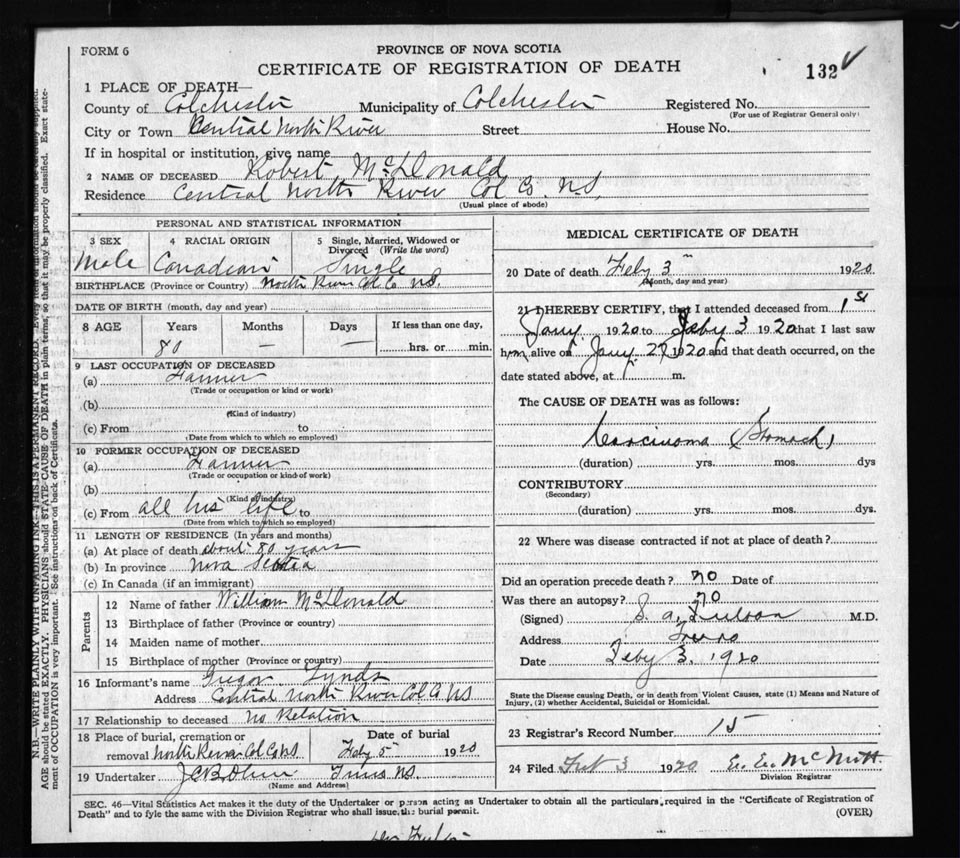 FORM 6
PROVINCE OF NOVA SCOTIA
CERTIFICATE OF REGISTRATION OF DEATH
132
1 PLACE OF DEATH—
County of Colchester Municipality of Colchester Registered No.
(For use of Registrar General only)
City or Town Central North River Street House No.
If in hospital or institution, give name
2 NAME OF DECEASED Robert McDonald
Residence Central North River Col Co. N.S.
(Usual place of abode)
PERSONAL AND STATISTICAL INFORMATION
3 SEX
Male
4 RACIAL ORIGIN
Canadian
5 Single, Married, Widowed or
Divorced (Write the word)
Single
BIRTHPLACE (Province or Country) North River Col. Co N.S.
DATE OF BIRTH (month, day and year)
8 AGE Years Months Days If less than one day,
80 — — hrs. or min.
9 LAST OCCUPATION OF DECEASED
(a) Farmer
(Trade or occupation or kind or work)
(b)
(Kind of industry)
(c) From to
(Date from which to which so employed)
10 FORMER OCCUPATION OF DECEASED
(a) Farmer
(Trade or occupation or kind of work)
(b)
(Kind of industry)
(c) From all his life to
(Date from which to which so employed)
11 LENGTH OF RESIDENCE (In years and months)
(a) At place of death about 80 years
(b) In province Nova Scotia
(c) In Canada (if an immigrant)
Parents
12 Name of father William McDonald
13 Birthplace of father (Province or country)
14 Maiden name of mother
15 Birthplace of mother (Province or country)
16 Informant's name Gregor Lynds
Address Central North River Col Co NS
17 Relationship to deceased No Relation
18 Place of burial, cremation or
removal North River Col Co NS
Date of burial
Feby 5 1920
19 Undertaker Truro N.S.
(Name and Address)
MEDICAL CERTIFICATE OF DEATH
20 Date of death Feby 3 1920
(Month, day and year)
21 I HEREBY CERTIFY, that I attended deceased from 1st
Jany. 1920 to Feby 3 1920 that I last saw
him alive on Jany. 27 1920 and that death occurred, on the
date stated above, at m.
The CAUSE OF DEATH was as follows:
Carcinoma (Stomach)
(duration) yrs. mos. dys
CONTRIBUTORY
(Secondary)
(duration) yrs. mos. dys.
22 Where was disease contracted if not at place of death?
Did an operation precede death? no Date of
Was there an autopsy? no
(Signed) S. A. M.D.
Address Truro
Date Feby 3. 1920
State the Disease causing Death, or in death from Violent Causes, state (1) Means and Nature of
Injury, (2) whether Accidental, Suicidal or Homicidal.
23 Registrar's Record Number 15
24 Filed 3 1920 E. E. McNutt.
Division Registrar
SEC. 46—Vital Statistics Act makes it the duty of the Undertaker or person acting as Undertaker to obtain all the particulars required in the "Certificate of Registration of
Death" and to fyle the same with the Division Registrar who shall issue the burial permit.
(OVER)